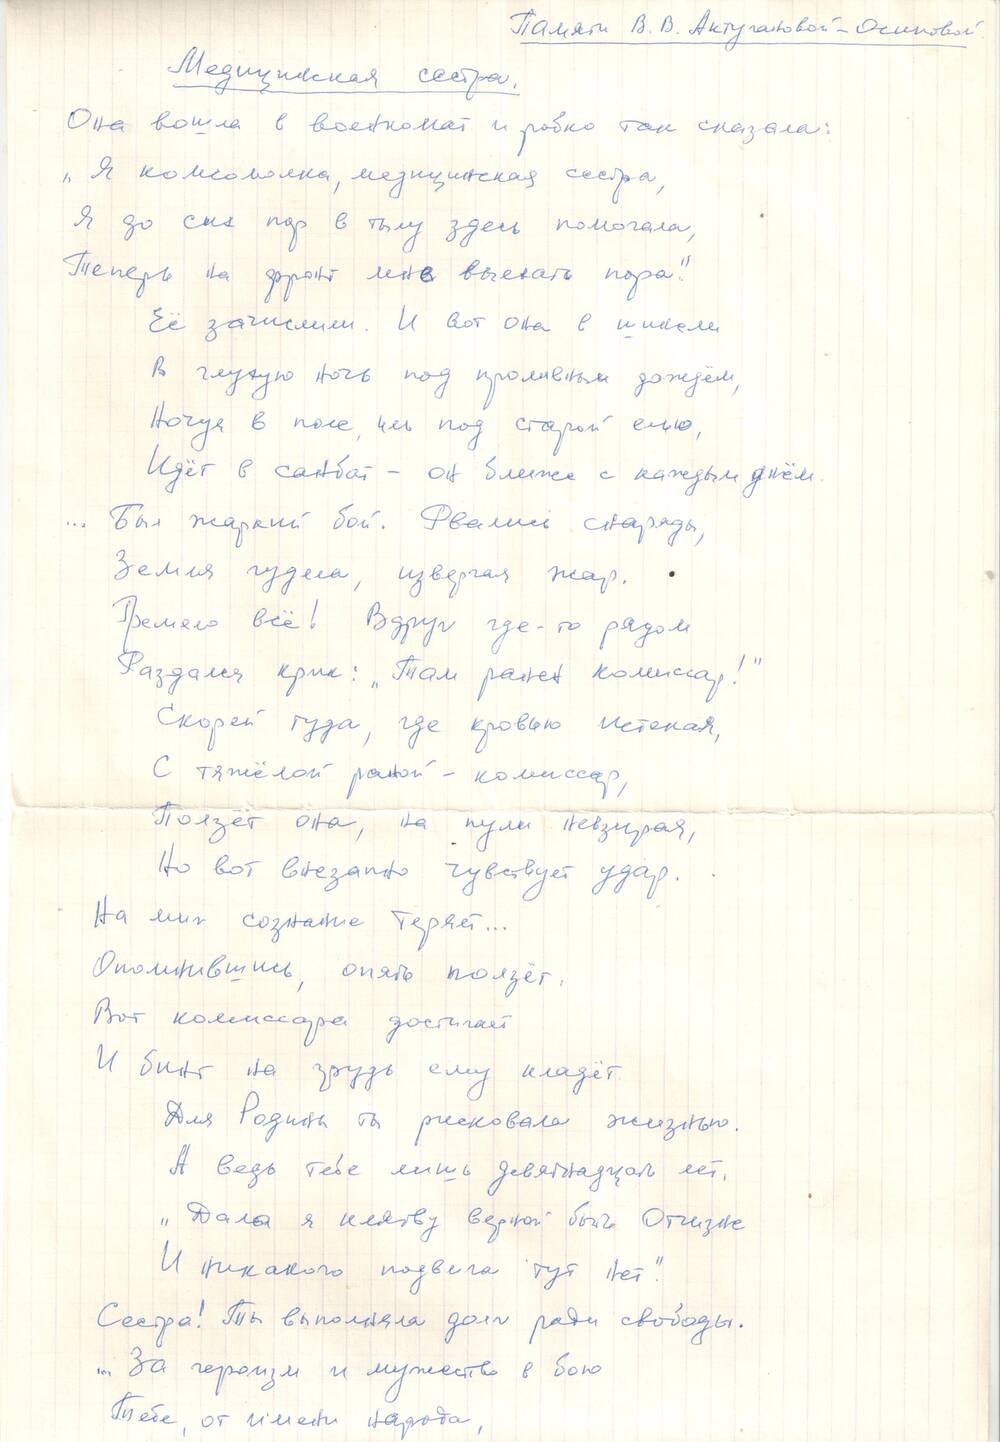 Памяти В. В. Актугановой-Осиповой.
Медицинская сестра.
Она вошла в военкомат и робко так сказала:
„Я комсомолка, медицинская сестра,
Я до сих пор в тылу здесь помогала,
Теперь на фронт мне выехать пора."
Её зачислили. И вот она в шинели
В глухую ночь под проливным дождём,
Ночуя в поле, иль под старой елью,
Идёт в санбат – он ближе с каждым днём.
... Был жаркий бой. Рвались снаряды,
Земля гудела, извергая жар.
Гремело всё! Вдруг где-то рядом
Раздался крик: „Там ранен комиссар!"
Скорей туда, где кровью истекая,
С тяжёлой раной – комиссар,
Ползёт она, на пули невзирая,
Но вот внезапно чувствует удар.
На миг сознание теряет...
Опомнившись, опять ползёт.
Вот комиссара достигает
И бинт на грудь ему кладёт.
Для Родины ты рисковала жизнью.
А ведь тебе лишь девятнадцать лет.
„Дала я клятву верной быть Отчизне
И никакого подвига тут нет".
Сестра! Ты выполняла долг ради свободы.
... За героизм и мужество в бою
Тебе, от имени народа,